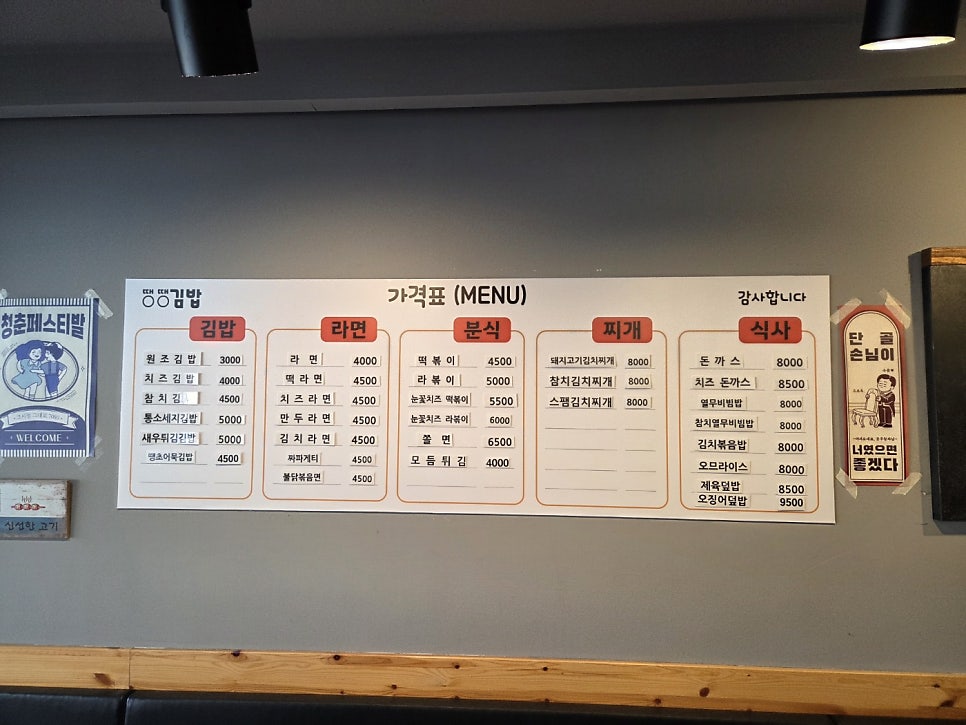 땡땡김밥
가격표 (MENU)
감사합니다
김밥
원조김밥 3000
치즈김밥 4000
참치김 4500
통소세지김밥 5000
새우튀김김밥 5000
땡초어묵김밥 4500
라면
라 면 4000
떡라면 4500
치즈라면 4500
만두라면 4500
김치라면 4500
짜파게티 4500
불닭볶음면 4500
분식
떡볶이 4500
라볶이 5000
눈꽃치즈 떡볶이 5500
눈꽃치즈 라볶이 6000
쫄 면 6500
모듬튀김 4000
찌개
돼지고기김치찌개 8000
참치김치찌개 8000
스팸김치찌개 8000
식사
돈까스 8000
치즈 돈까스 8500
열무비빔밥 8000
참치열무비빔밥 8000
김치볶음밥 8000
오므라이스 8000
제육덮밥 8500
오징어덮밥 9500
청춘페스티발
WELCOME
신선한 고기
단골
손님이
너였으면
좋겠다